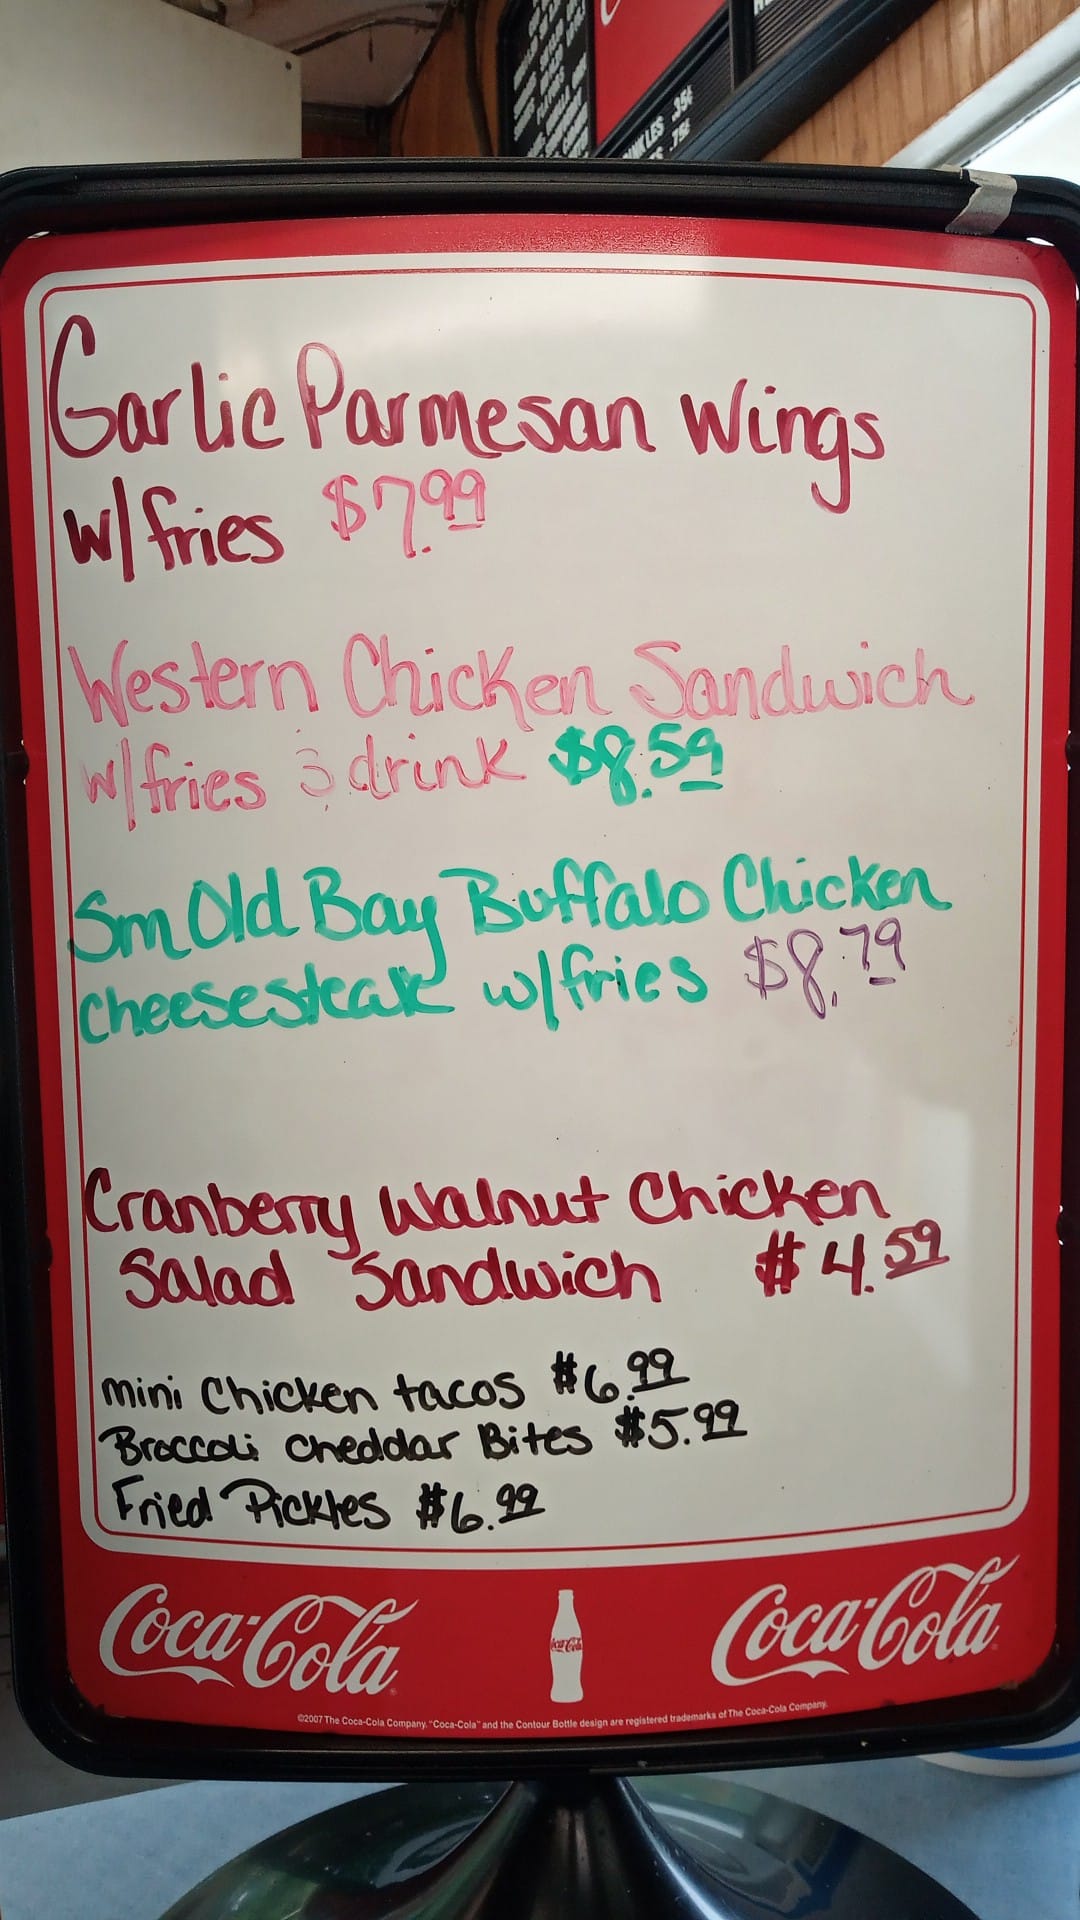 .35¢
.75¢
Garlic Parmesan Wings
w/fries $7.99
Western Chicken Sandwich
w/fries & drink $8.59
Sm Old Bay Buffalo Chicken
cheesesteak w/fries $8.79
Cranberry Walnut Chicken
Salad Sandwich $4.59
mini Chicken tacos $6.99
Broccoli Cheddar Bites $5.99
Fried Pickles $6.99
Coca-Cola Coca-Cola Coca-Cola
©2007 The Coca-Cola Company. "Coca-Cola" and the Contour Bottle design are registered trademarks of The Coca-Cola Company.